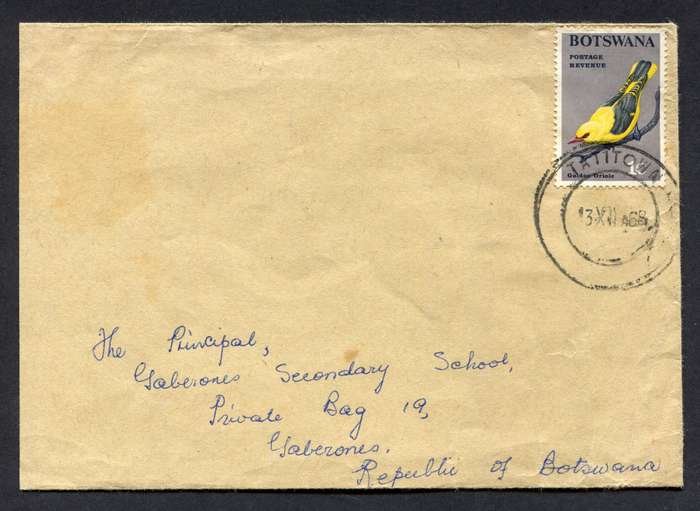 BOTSWANA
POSTAGE
REVENUE
Golden Oriole
TATITOWN
The Principal,
Gaberones Secondary School,
Private Bag 19,
Gaberones.
Republic of Botswana